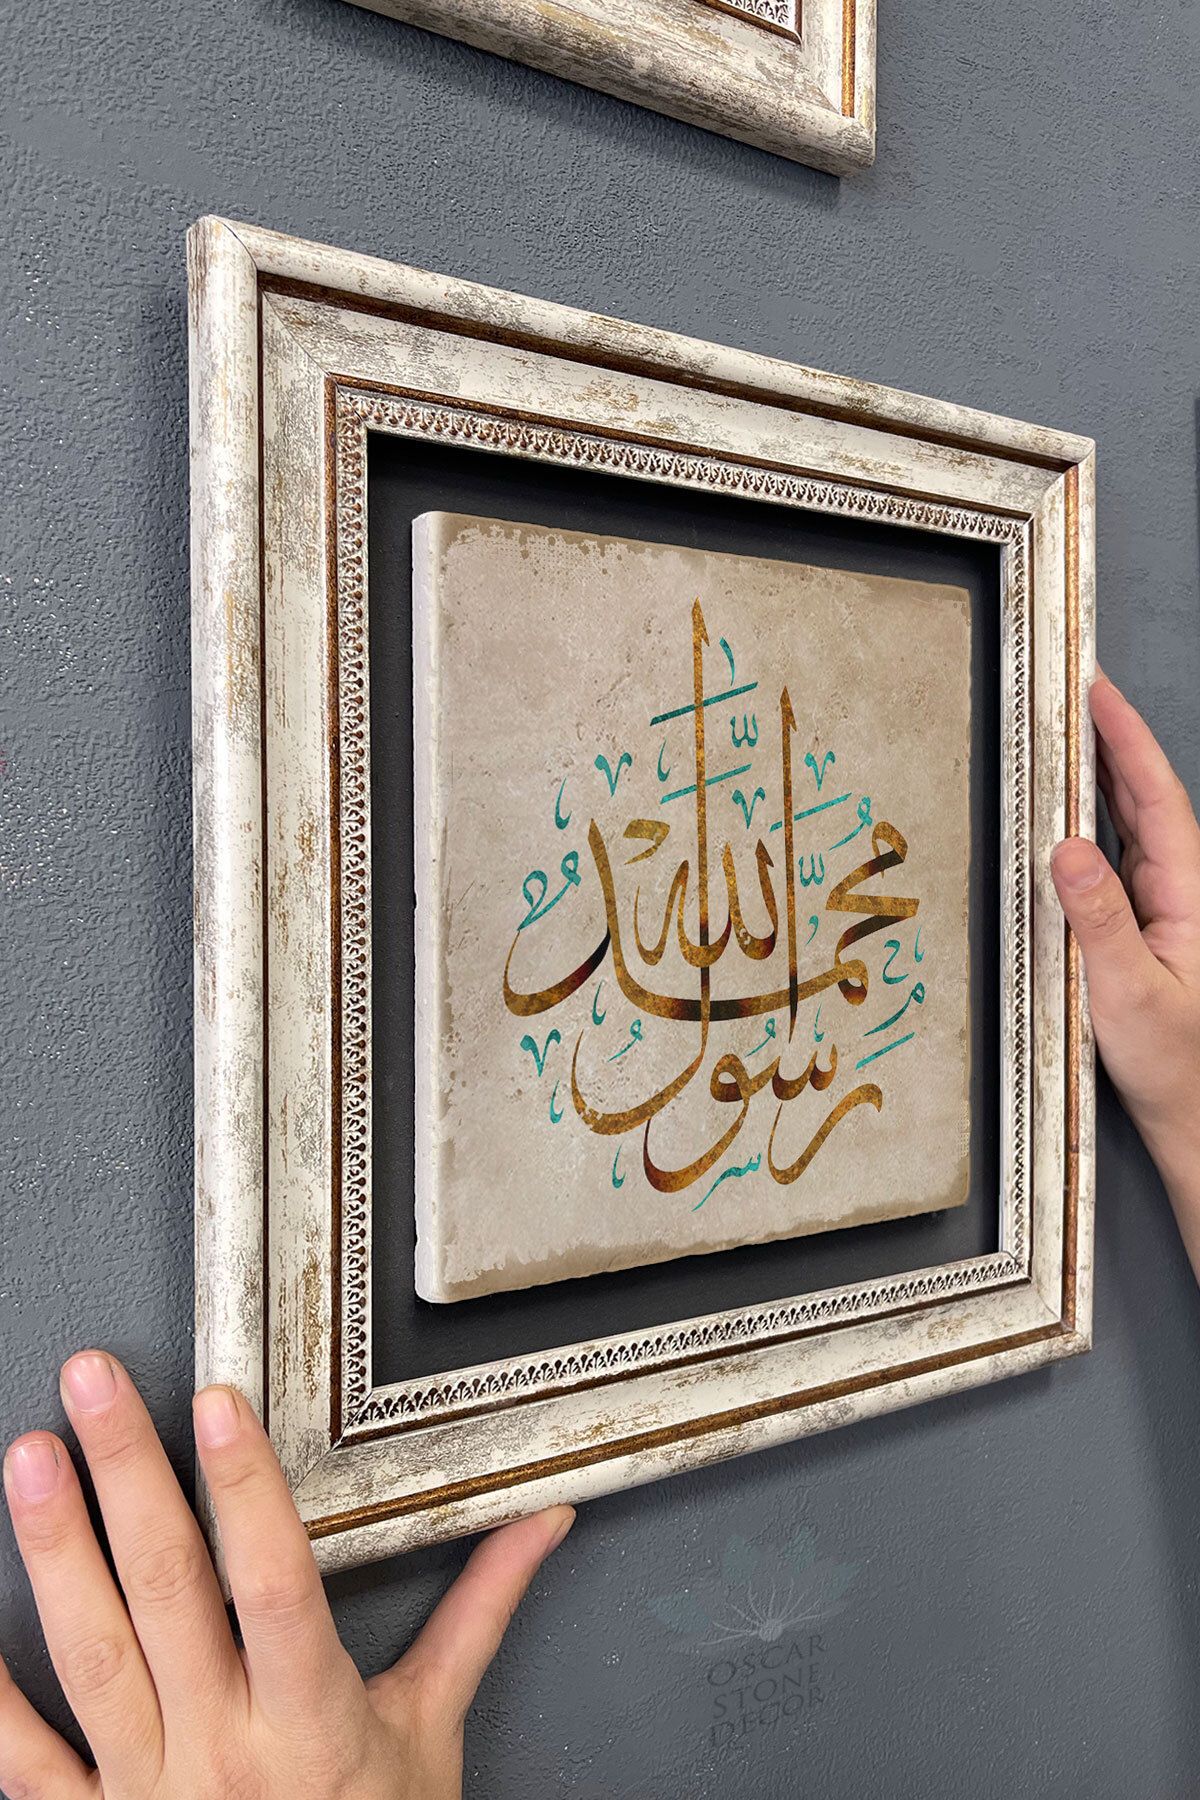 محمد رسول الله
OSCAR
STONE
DECOR